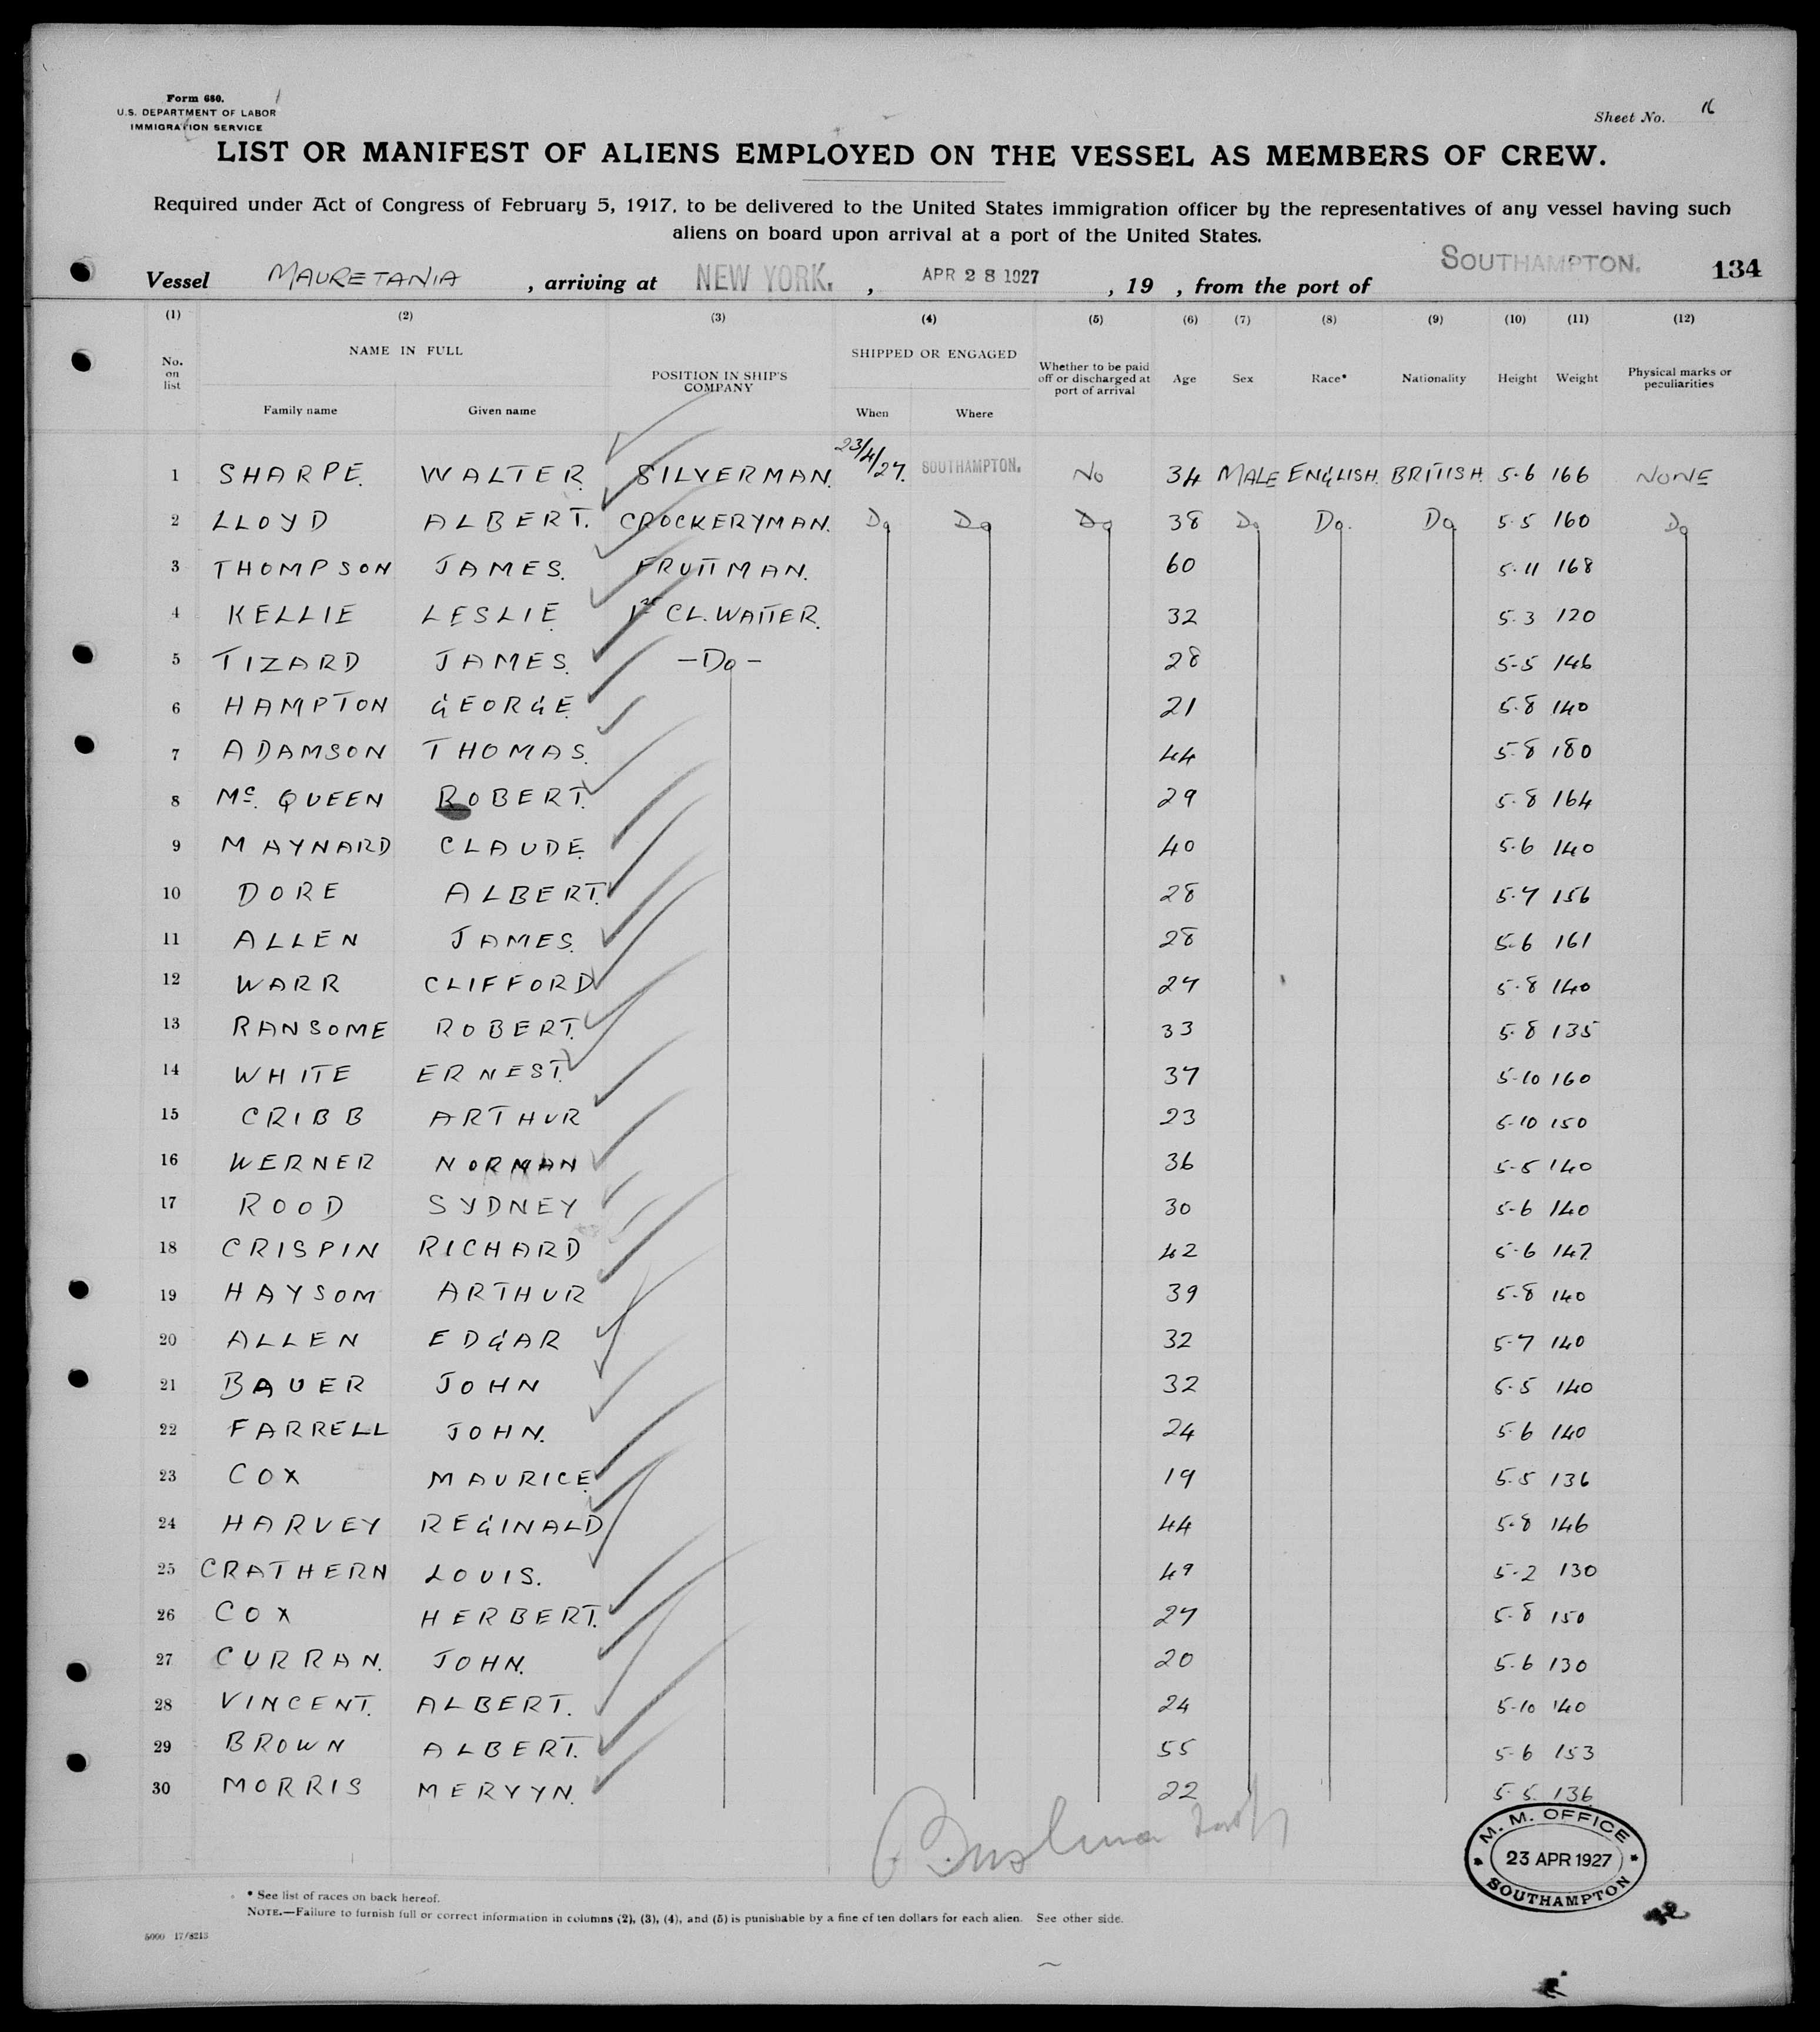 Form 680.
U.S. DEPARTMENT OF LABOR
IMMIGRATION SERVICE
Sheet No. 16
LIST OR MANIFEST OF ALIENS EMPLOYED ON THE VESSEL AS MEMBERS OF CREW.
Required under Act of Congress of February 5, 1917, to be delivered to the United States immigration officer by the representatives of any vessel having such
aliens on board upon arrival at a port of the United States.
Vessel MAURETANIA , arriving at NEW YORK. , APR 28 1927 , 19 , from the port of SOUTHAMPTON. 134
(1) (2) (3) (4) (5) (6) (7) (8) (9) (10) (11) (12)
No. on list NAME IN FULL Family name Given name POSITION IN SHIP'S COMPANY SHIPPED OR ENGAGED When Where Whether to be paid off or discharged at port of arrival Age Sex Race* Nationality Height Weight Physical marks or peculiarities
1 SHARPE. WALTER. SILVERMAN. 23/4/27. SOUTHAMPTON. No 34 MALE ENGLISH. BRITISH. 5-6 166 NONE
2 LLOYD ALBERT. CROCKERYMAN. Do Do Do 38 Do Do. Do 5-5 160 Do
3 THOMPSON JAMES. FRUITMAN. 60 5-11 168
4 KELLIE LESLIE. 1st CL. WAITER. 32 5-3 120
5 TIZARD JAMES. -Do- 28 5-5 146
6 HAMPTON GEORGE. 21 5-8 140
7 ADAMSON THOMAS. 44 5-8 180
8 Mc. QUEEN ROBERT. 29 5-8 164
9 MAYNARD CLAUDE. 40 5-6 140
10 DORE ALBERT. 28 5-7 156
11 ALLEN JAMES. 28 5-6 161
12 WARR CLIFFORD 27 5-8 140
13 RANSOME ROBERT. 33 5-8 135
14 WHITE ERNEST. 37 5-10 160
15 CRIBB ARTHUR 23 5-10 150
16 WERNER NORMAN 36 5-5 140
17 ROOD SYDNEY 30 5-6 140
18 CRISPIN RICHARD 42 5-6 147
19 HAYSOM ARTHUR 39 5-8 140
20 ALLEN EDGAR 32 5-7 140
21 BAUER JOHN 32 5-5 140
22 FARRELL JOHN. 24 5-6 140
23 COX MAURICE. 19 5-5 136
24 HARVEY REGINALD 44 5-8 146
25 CRATHERN LOUIS. 49 5-2 130
26 COX HERBERT. 27 5-8 150
27 CURRAN. JOHN. 20 5-6 130
28 VINCENT. ALBERT. 24 5-10 140
29 BROWN ALBERT. 55 5-6 153
30 MORRIS MERVYN. 22 5-5. 136
M. M. OFFICE
23 APR 1927
SOUTHAMPTON
* See list of races on back hereof.
NOTE.—Failure to furnish full or correct information in columns (2), (3), (4), and (5) is punishable by a fine of ten dollars for each alien. See other side.
5000 17/8213